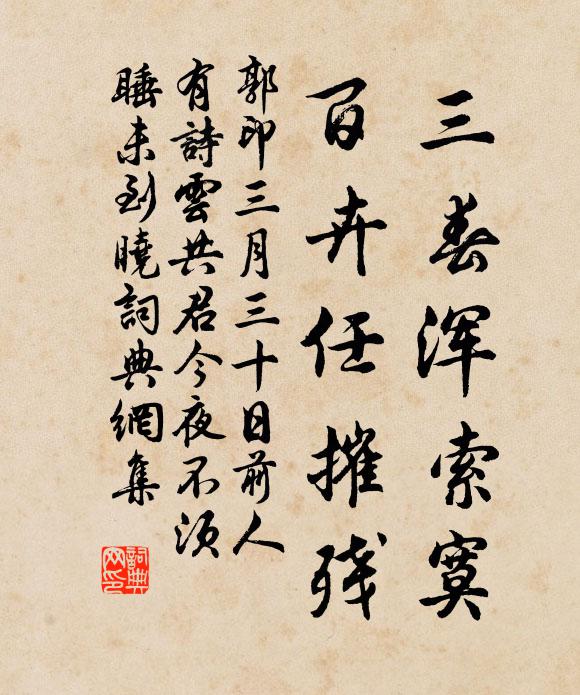 三春浑索寞
百卉任摧残
郭印三月三十日前人
有詩雲共君今夜不须
睡未到曉詞典網集
詞典网印